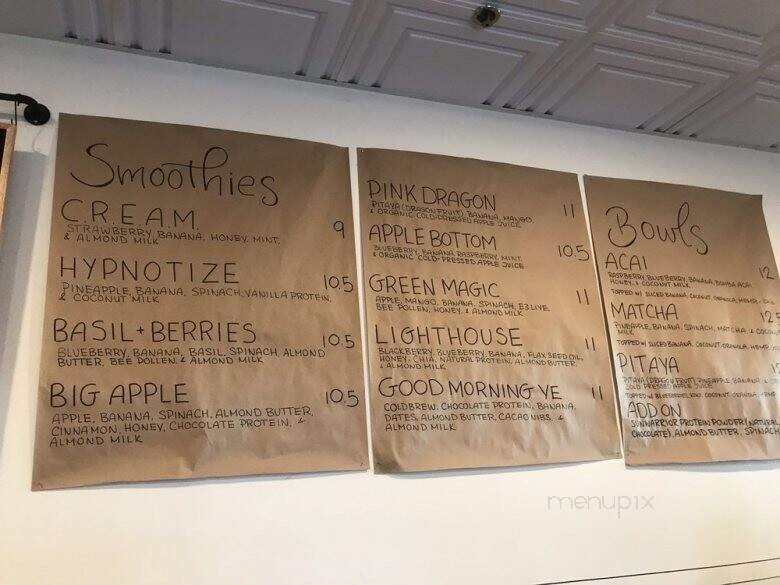 Smoothies
C.R.E.A.M. 9
STRAWBERRY, BANANA, HONEY, MINT,
& ALMOND MILK
HYPNOTIZE 10.5
PINEAPPLE, BANANA, SPINACH, VANILLA PROTEIN,
& COCONUT MILK
BASIL+BERRIES 10.5
BLUEBERRY, BANANA, BASIL, SPINACH, ALMOND
BUTTER, BEE POLLEN, & ALMOND MILK
BIG APPLE 10.5
APPLE, BANANA, SPINACH, ALMOND BUTTER,
CINNAMON, HONEY, CHOCOLATE PROTEIN, &
ALMOND MILK
PINK DRAGON 11
PITAYA (DRAGONFRUIT), BANANA, MANGO,
& ORGANIC COLD-PRESSED APPLE JUICE
APPLE BOTTOM 10.5
BLUEBERRY, BANANA, RASPBERRY, MINT,
& ORGANIC COLD-PRESSED APPLE JUICE
GREEN MAGIC 11
APPLE, MANGO, BANANA, SPINACH, E3LIVE,
BEE POLLEN, HONEY, & ALMOND MILK
LIGHTHOUSE 11
BLACKBERRY, BLUEBERRY, BANANA, FLAX SEED OIL,
HONEY, CHIA, NATURAL PROTEIN, ALMOND BUTTER,
& ALMOND MILK
GOOD MORNING YE 11
COLDBREW, CHOCOLATE PROTEIN, BANANA,
DATES, ALMOND BUTTER, CACAO NIBS, &
ALMOND MILK
Bowls
ACAI 12
RASPBERRY, BLUEBERRY, BANANA, BOMBA ACAI,
HONEY, & COCONUT MILK
TOPPED W/ SLICED BANANA, COCONUT, GRANOLA, HEMP
MATCHA 12.5
PINEAPPLE, BANANA, SPINACH, MATCHA, & COCONUT
MILK
TOPPED W/ SLICED BANANA, COCONUT, GRANOLA, HEMP
PITAYA
PITAYA (DRAGON FRUIT), PINEAPPLE, BANANA, &
COLD PRESSED APPLE JUICE
TOPPED W/ BLUEBERRIES, KIWI, COCONUT, GRANOLA, HEMP
ADD ON
SUNWARRIOR PROTEIN POWDER (NATURAL,
CHOCOLATE), ALMOND BUTTER, SPINACH
menupix